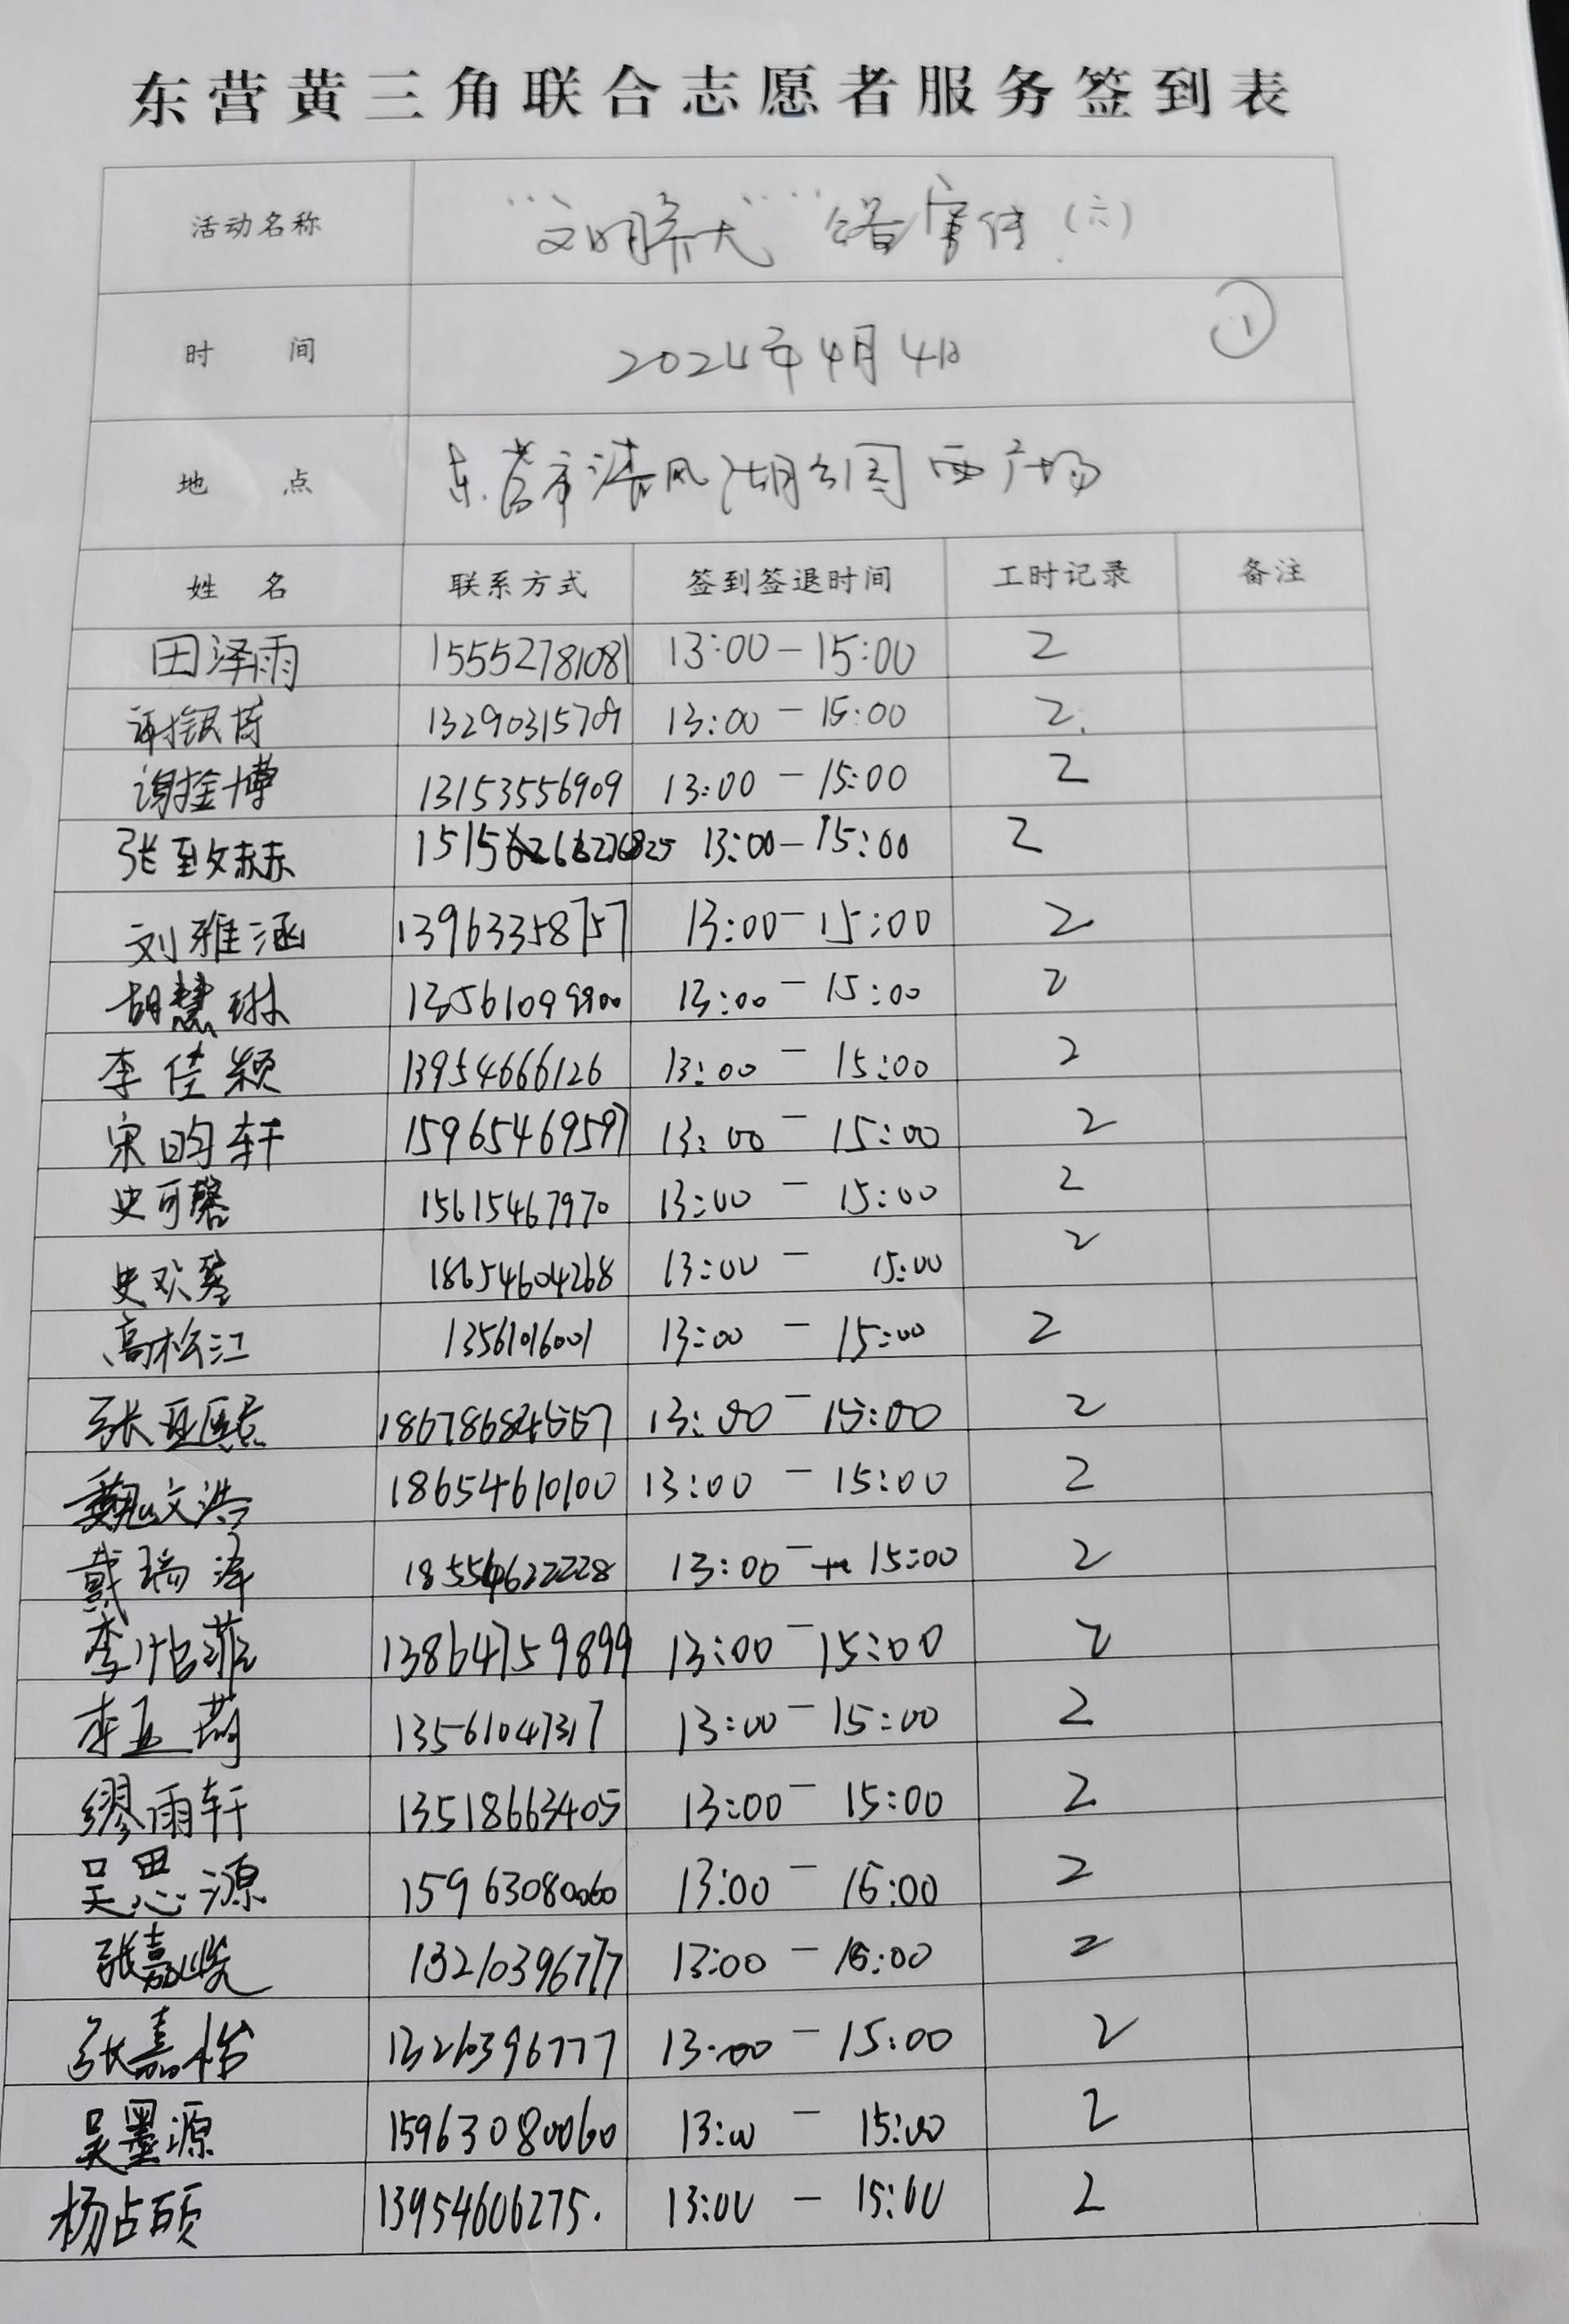 东营黄三角联合志愿者服务签到表
活动名称 “文明祭扫” 公益宣传(六)
时 间 2024年4月4日 ①
地 点 东营市清风湖公园西广场
姓 名 联系方式 签到签退时间 工时记录 备注
田泽雨 15552781081 13:00-15:00 2
13:00-15:00 2
13153556909 13:00-15:00 2
13:00-15:00 2
刘雅涵 13963358757 13:00-15:00 2
胡慧琳 13561099900 13:00-15:00 2
李佳颖 13954666126 13:00-15:00 2
宋昀轩 15965469597 13:00-15:00 2
史可馨 15615467970 13:00-15:00 2
18654604268 13:00-15:00 2
高松江 1356106001 13:00-15:00 2
13:00-15:00 2
魏文浩 18654610100 13:00-15:00 2
戴瑞泽 18554622228 13:00-15:00 2
李怡菲 13864759899 13:00-15:00 2
13561047317 13:00-15:00 2
缪雨轩 13518663405 13:00-15:00 2
吴思源 15963080060 13:00-15:00 2
张嘉峻 13210396777 13:00-15:00 2
张嘉怡 13210396777 13:00-15:00 2
吴墨源 15963080060 13:00-15:00 2
杨占硕 13954606275. 13:00-15:00 2